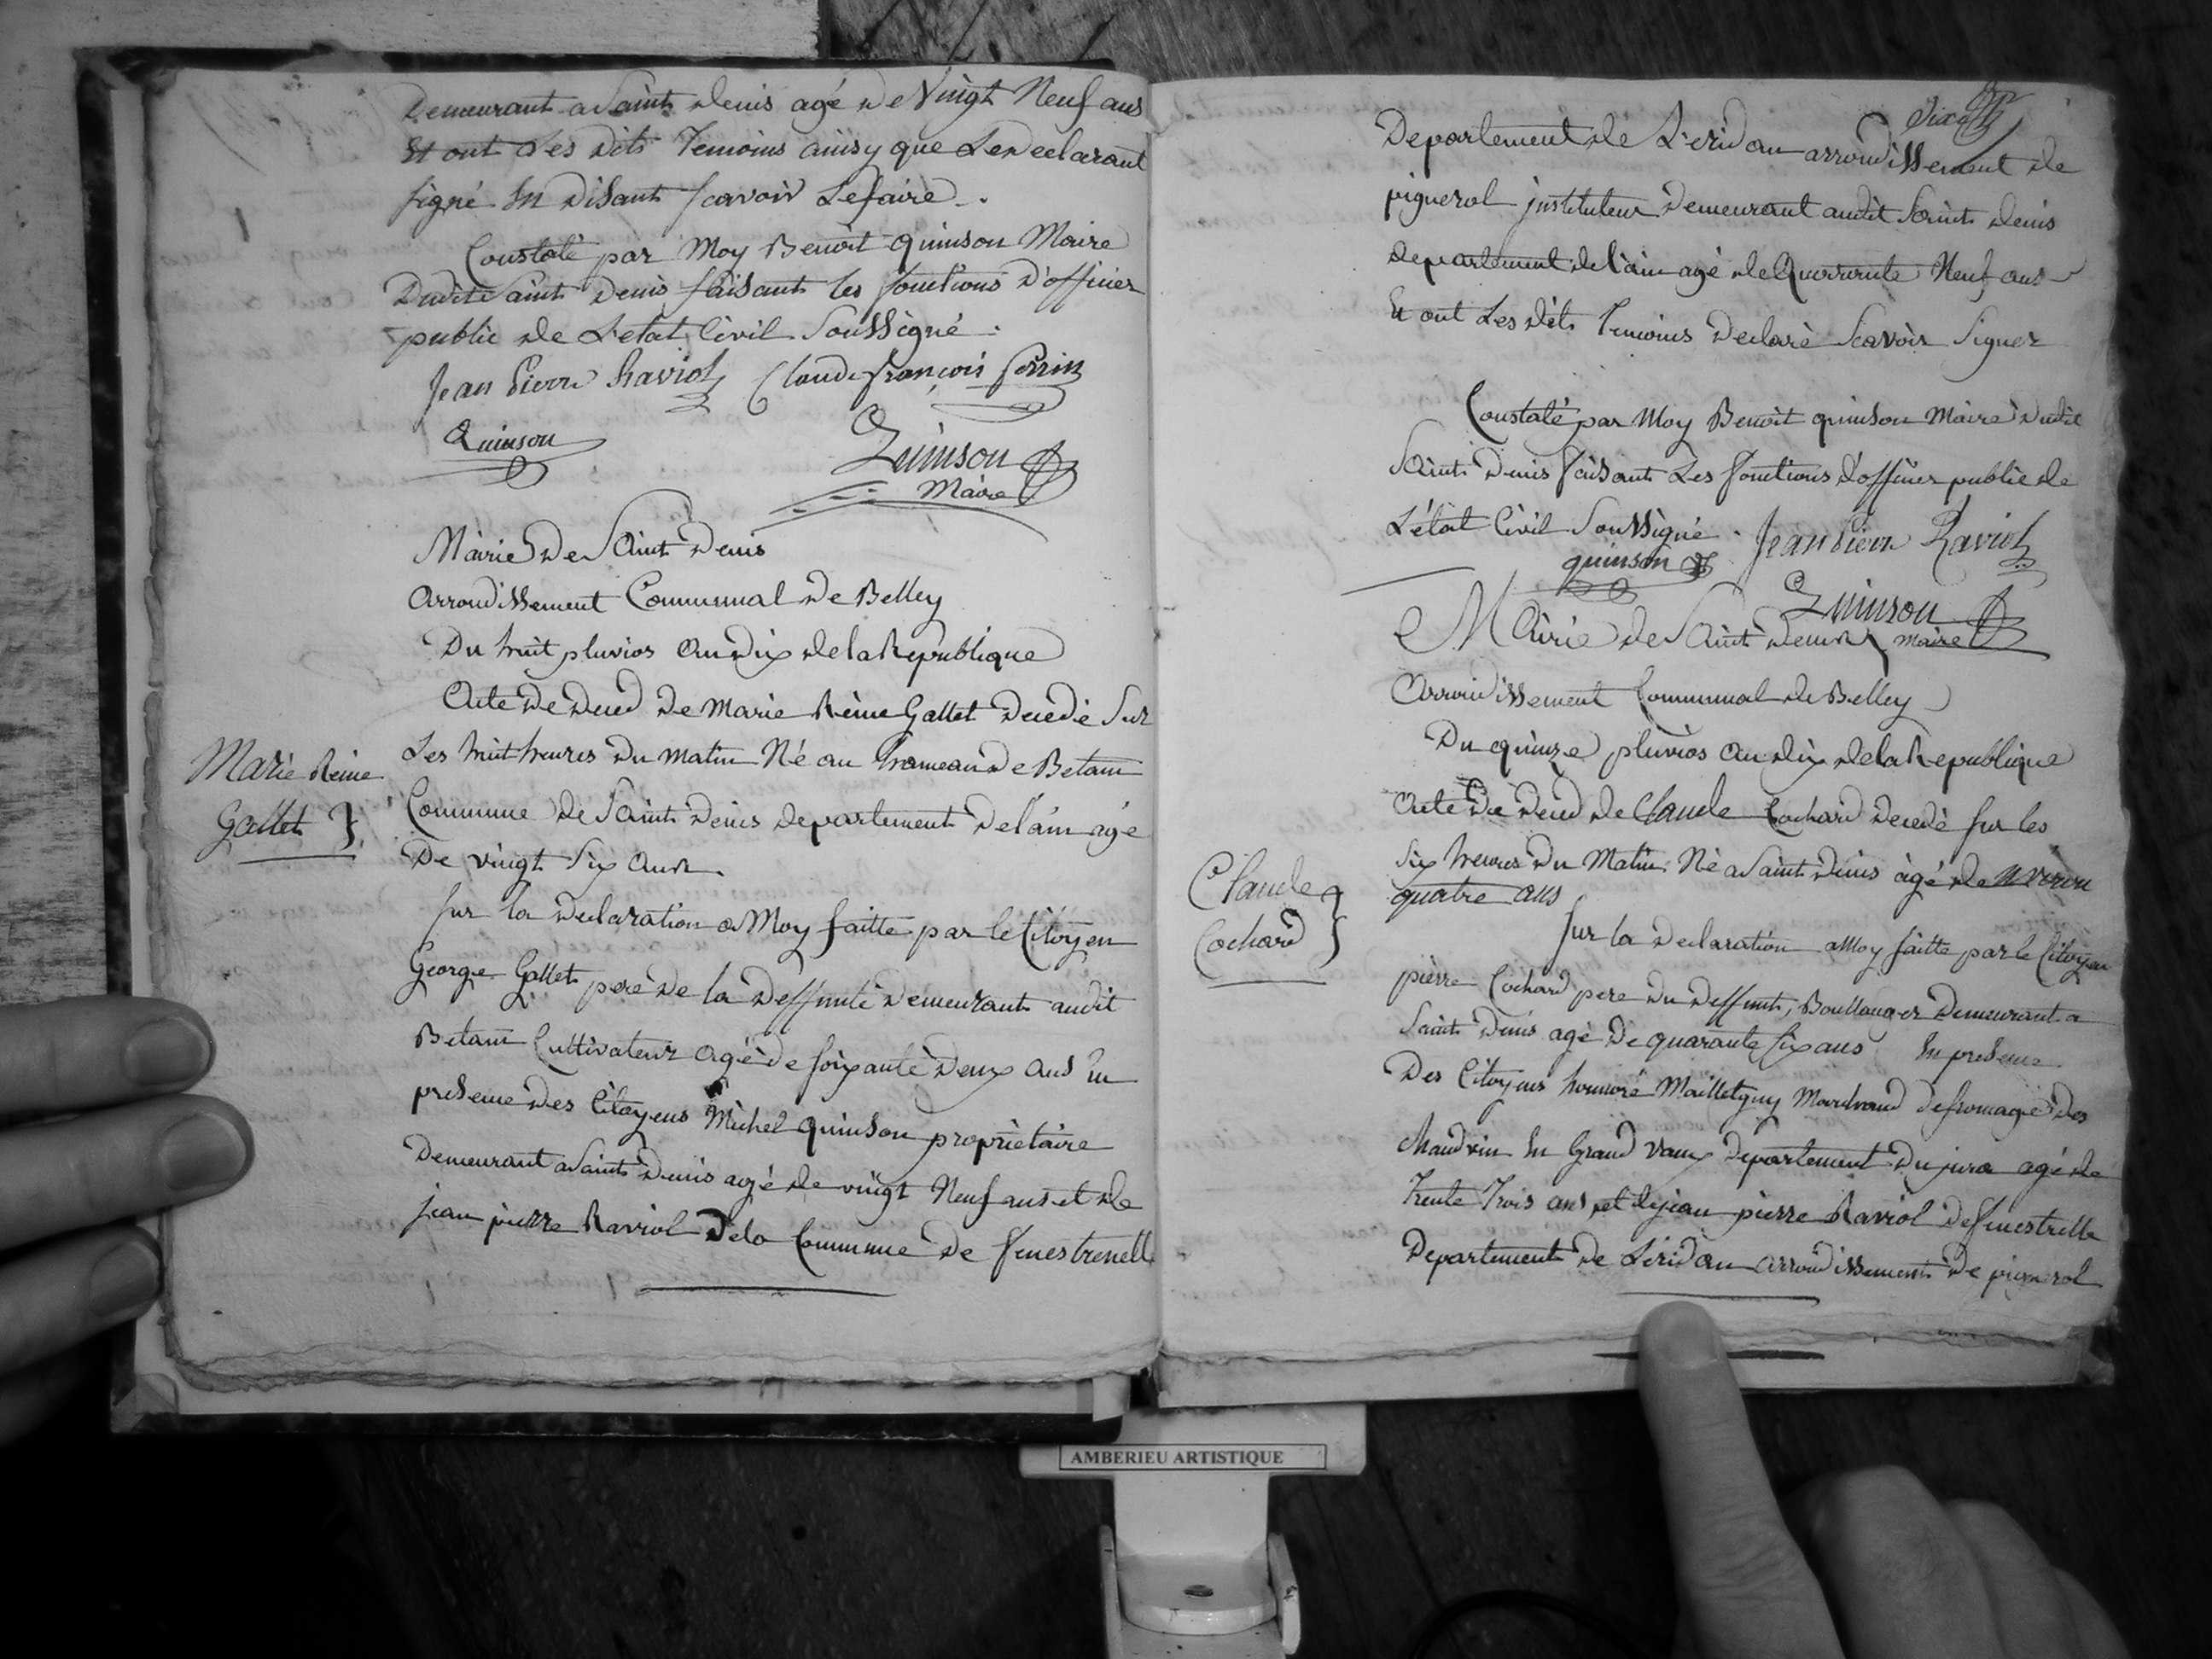 Demeurant a Saint Denis agé de Vingt Neuf ans
Et ont Les dits Temoins ainsy que Le Declarant
signé En disant scavoir Le faire.
Constaté par Moy Benoit quinson Maire
Dudit Saint Denis faisant les fonctions D'officier
public de L'etat Civil Soussigné.
Jean Pierre Raviol Claude françois Perrin
Quinson
Quinson
Maire
Mairie De Saint Denis
Arrondissement Communal De Belley
Du huit pluvios an dix de la Republique
Marie Reine
Gallet }
Acte De Deced De Marie Reine Gallet Decedé Sur
Les huit heures Du Matin Né au hameau De Betam
Commune De Saint Denis departement De l'ain agé
De vingt Six ans.
sur la Declaration a Moy faitte par le Citoyen
George Gallet pere De la Deffunte Demeurant audit
Betam Cultivateur agé de soixante Deux ans En
presence Des Citoyens Michel quinson propriétaire
Demeurant a Saint Denis agé de vingt Neuf ans et de
jean pierre Raviol De la Commune De fenestrenelle
Departement de L'eridan arrondissement de
pignerol jnstituteur Demeurant audit Saint Denis
departement de l'ain agé de Quarrante Neuf ans
Et ont Les dits Temoins Declaré Scavoir Signer
Constaté par Moy Benoit quinson Maire Dudit
Saint Denis faisant Les fonctions d'officier public de
L'état Civil Soussigné. Jean Pierre Raviol
quinson
Quinson
maire
Mairie de Saint Denis
Arrondissement Communal de Belley
Du quinze pluvios an dix de la Republique
Claude }
Cochard }
Acte De Deced de Claude Cochard Decedé sur les
Six heures Du Matin Né a Saint Denis âgé de
quatre ans
sur la Declaration a Moy faitte par le Citoyen
pierre Cochard pere Du Deffunt, Boullanger Demeurant a
Saint Denis agé De quarante six ans En presence
Des Citoyens honnoré Mailletguy Marchand de fromage Des
Chaudvin En Grand Vaux Departement Du jura agé de
Trente Trois ans et de jean pierre Raviol De fenestrelle
Departement De L'eridan arrondissement De pignerol
AMBERIEU ARTISTIQUE